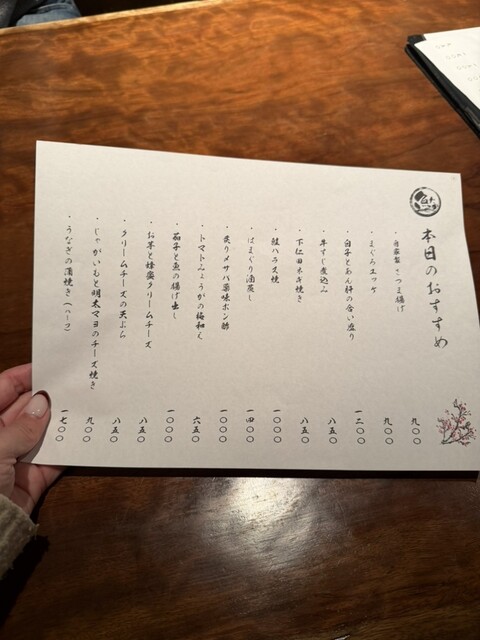 本日のおすすめ
・自家製 さつま揚げ 九〇〇
・まぐろユッケ 九〇〇
・白子とあん肝の合い盛り 一二〇〇
・牛すじ煮込み 八五〇
・下仁田ネギ焼き 八五〇
・鮭ハラス焼 一〇〇〇
・はまぐり酒蒸し 一四〇〇
・炙りメサバ薬味ポン酢 一〇〇〇
・トマトみょうがの梅和え 六五〇
・茄子と魚の揚げ出し 一〇〇〇
・お芋と蜂蜜クリームチーズ 八五〇
・クリームチーズの天ぷら 八五〇
・じゃがいもと明太マヨのチーズ焼き 九〇〇
・うなぎの蒲焼き（ハーフ） 一七〇〇